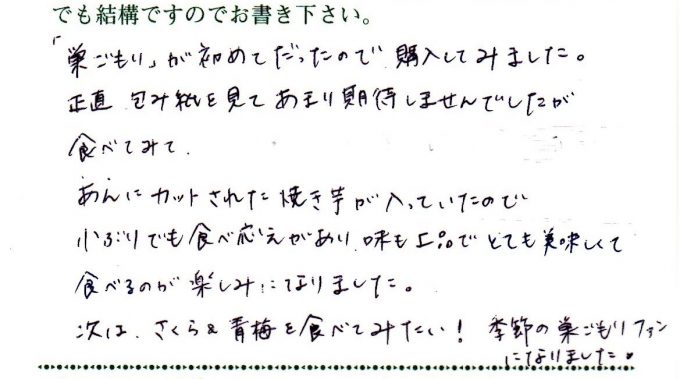 でも結構ですのでお書き下さい。
「巣ごもり」が初めてだったので購入してみました。
正直 包み紙を見てあまり期待しませんでしたが
食べてみて、
あんにカットされた焼き芋が入っていたので
小ぶりでも食べ応えがあり、味も上品でとても美味しくて
食べるのが楽しみになりました。
次は、さくら&青梅を食べてみたい! 季節の巣ごもりファン
になりました。